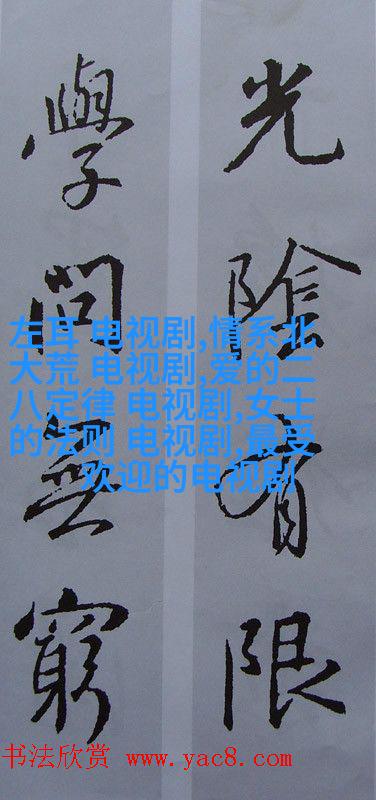 光陰有限
學問無窮
左耳 电视剧,情系北
大荒 电视剧,爱的二
八定律 电视剧,女士
的法则 电视剧,最受
欢迎的电视剧
书法欣赏 www.yac8.com